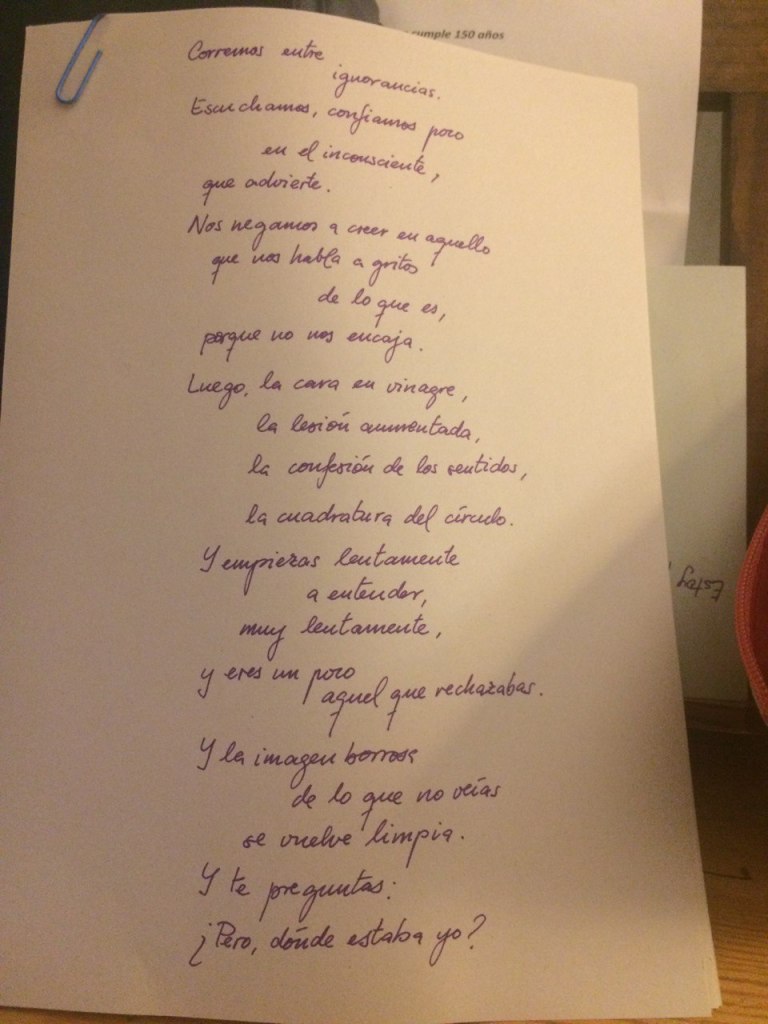 cumple 150 años
Corremos entre
ignorancias.
Escuchamos, confiamos poco
en el inconsciente,
que advierte.
Nos negamos a creer en aquello
que nos habla a gritos
de lo que es,
porque no nos encaja.
Luego, la cara en vinagre,
la lesión aumentada,
la confesión de los sentidos,
la cuadratura del círculo.
Y empiezas lentamente
a entender,
muy lentamente,
y eres un poco
aquel que rechazabas.
Y la imagen borrosa
de lo que no veías
se vuelve limpia.
Y te preguntas:
¿Pero, dónde estaba yo?
Estoy